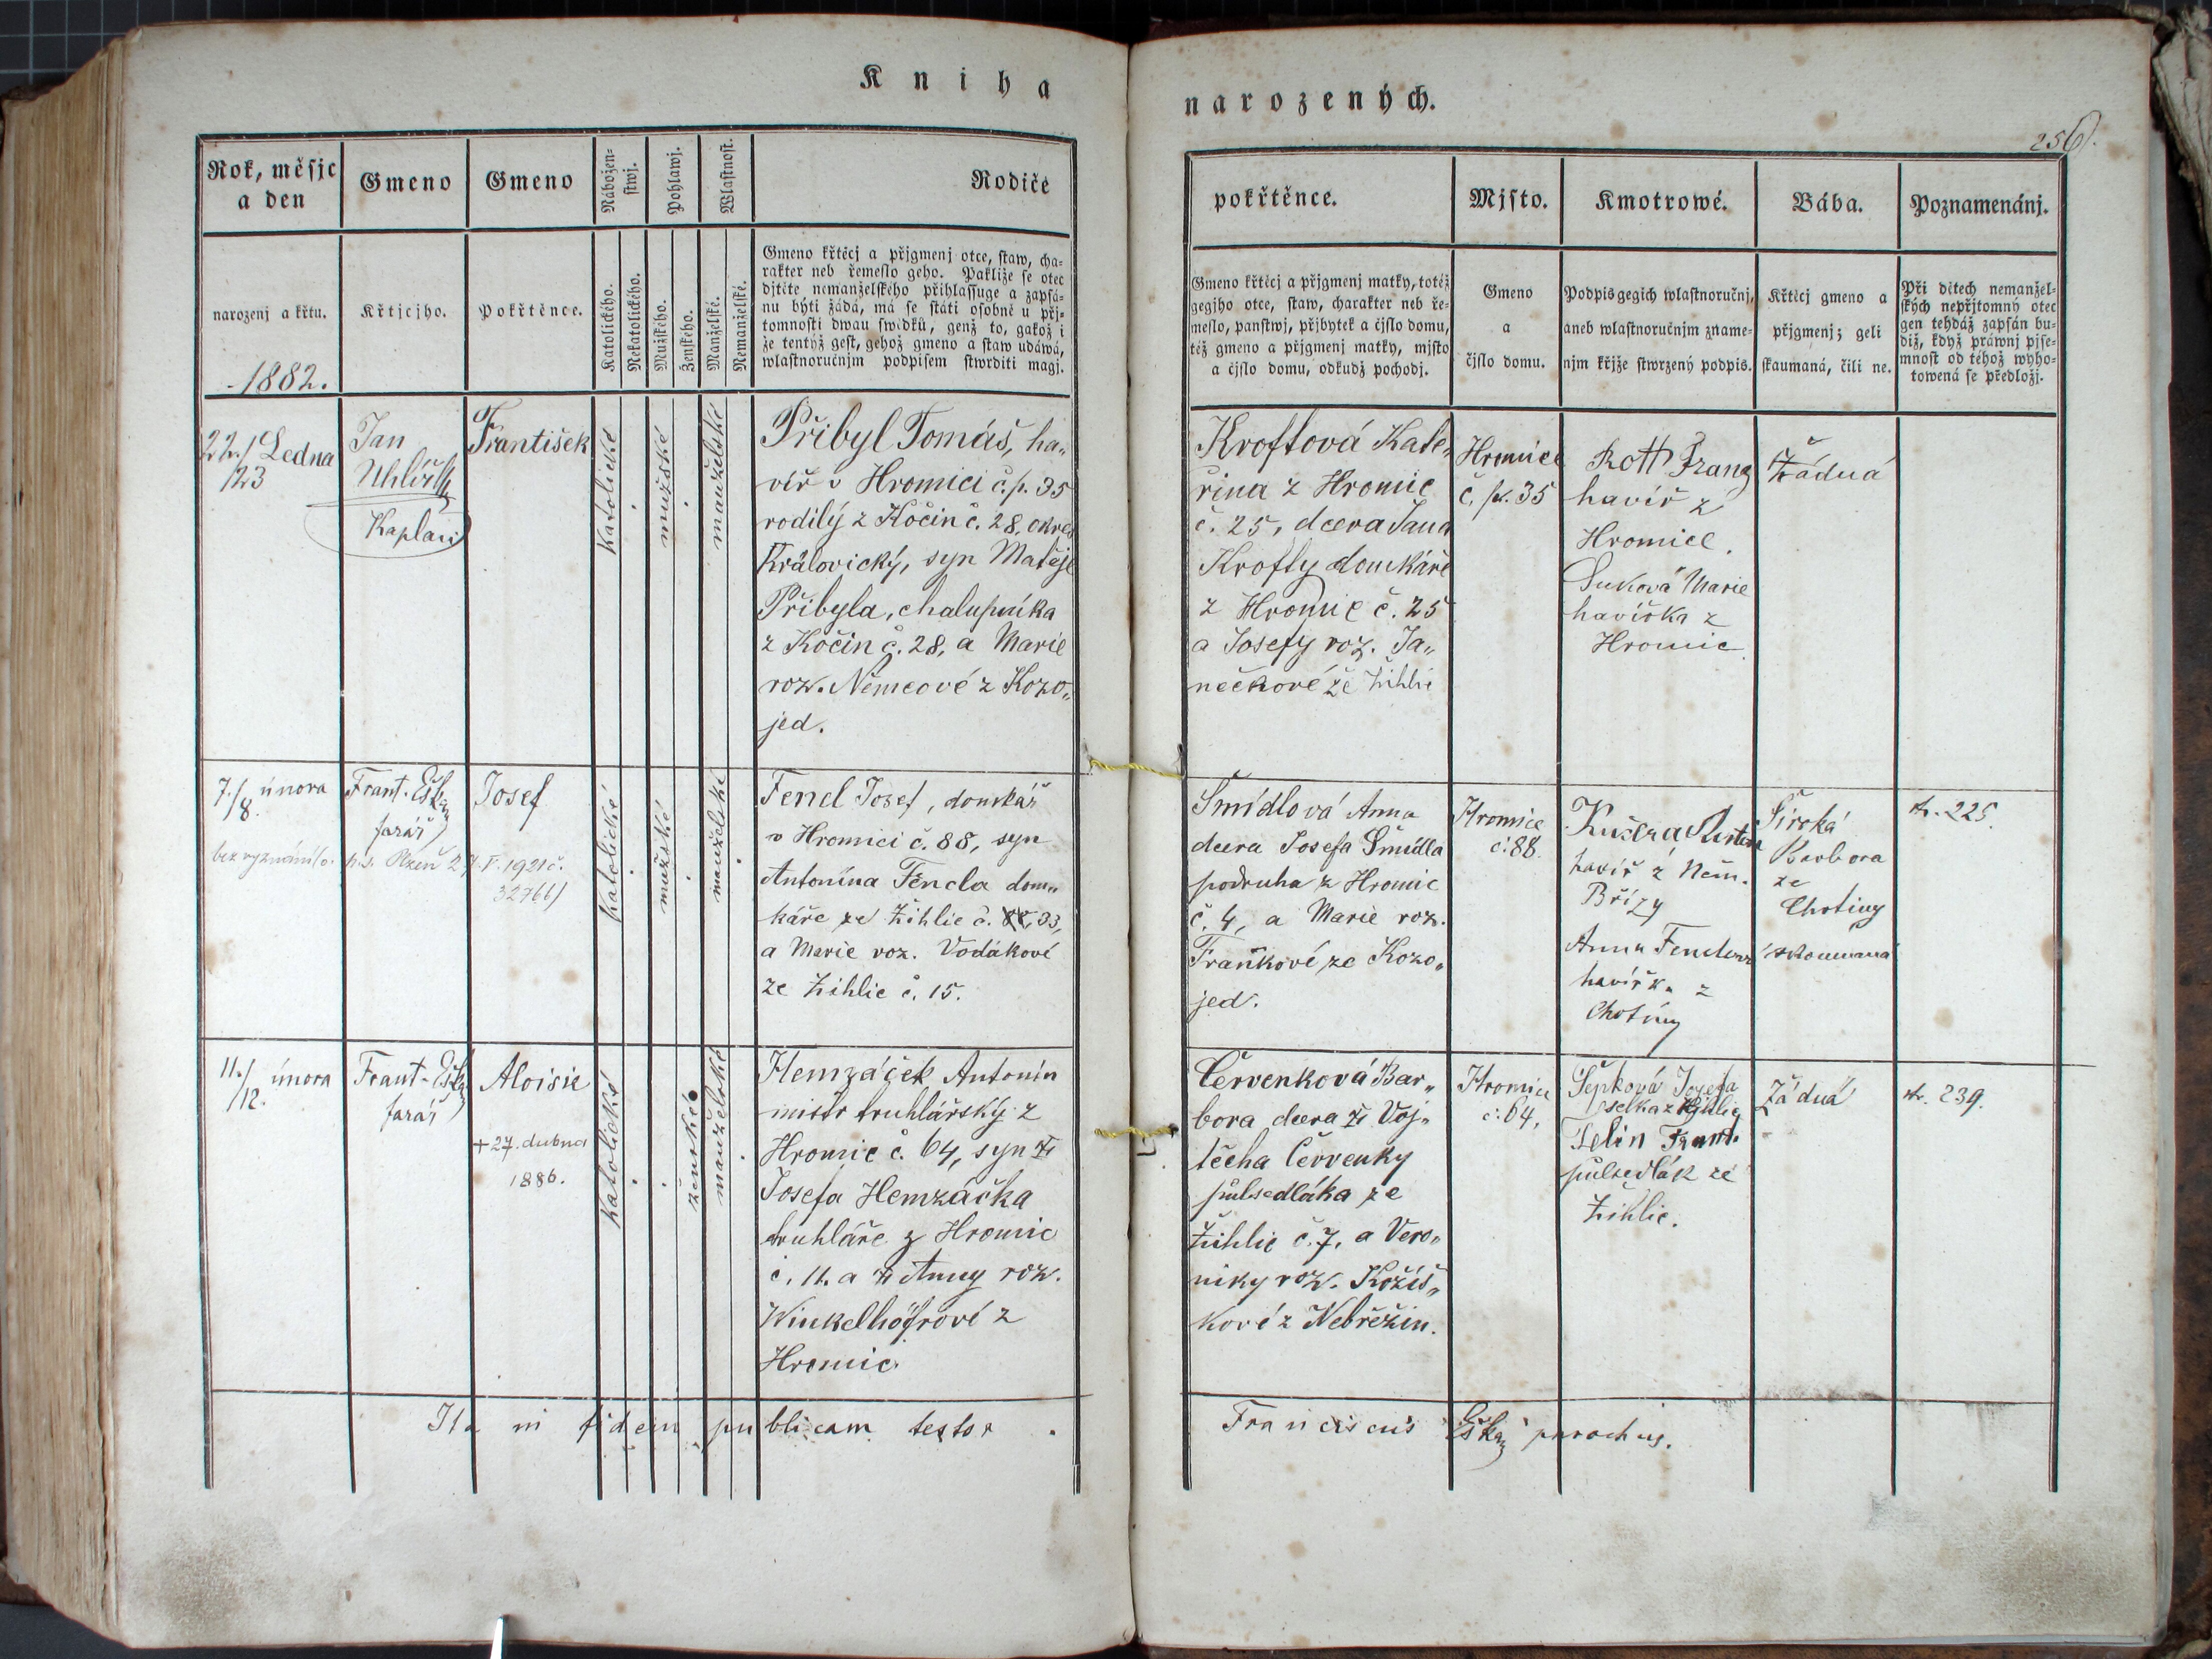 Kniha
narozených.
256.
Rok, měsjc
a den
Gmeno
Gmeno
Nábožen=
stwj.
Pohlawj.
Wlastnost.
Rodiče
pokřtěnce.
Mjsto.
Kmotrowé.
Bába.
Poznamenánj.
narozenj a křtu.
Křtjcjho.
Pokřtěnce.
Katolického.
Nekatolického.
Mužského.
Ženského.
Manželské.
Nemanželské.
Gmeno křtěcj a přjgmenj otce, staw, cha=
rakter neb řemeslo geho. Pakliže se otec
djtěte nemanželského přihlassuge a zapsá=
nu býti žádá, má se státi osobně u přj=
tomnosti dwau swědků, genž to, gakož i
že tentýž gest, gehož gmeno a staw udáwá,
wlastnoručnjm podpisem stwrditi magj.
Gmeno křtěcj a přjgmenj matky, totéž
gegjho otce, staw, charakter neb ře=
meslo, panstwj, přjbytek a čjslo domu,
též gmeno a přjgmenj matky, mjsto
a čjslo domu, odkudž pochodj.
Gmeno
a
čjslo domu.
Podpis gegich wlastnoručnj,
aneb wlastnoručnjm zname=
njm křjže stwrzený podpis.
Křtěcj gmeno a
přjgmenj; geli
skaumaná, čili ne.
Při dětech nemanžel=
ských nepřjtomný otec
gen tehdáž zapsán bu=
diž, když práwnj pjse=
mnost od téhož wyho=
towená se předložj.
- 1882.
22./ Ledna
/23
Jan
Uhlíř
Kaplan
František
katolické
mužské
manželské
Přibyl Tomáš, ha„
víř v Hromici č.p. 35
rodilý z Kočin č. 28, okres
Královický, syn Matěje
Přibyla, chalupníka
z Kočin č. 28, a Marie
roz. Němcové z Kozo„
jed.
Kroftová Kate„
řina z Hromic
č. 25, dcera Jana
Krofty domkáře
z Hromic č. 25
a Josefy roz. Ja„
nečkové ze Žihlic
Hromice
č. p. 35
Rott Franz
havíř z
Hromice.
Suková Marie
havířka z
Hromic.
Žádná
7./ února
/8.
Frant. Eška
farář
Josef
bez vyznání (o. p. s. Plzeň 27.V.1921 č.
32766)
katolické
mužské
manželské
Fencl Josef, domkář
v Hromici č. 88, syn
Antonína Fencla dom„
káře ze Žihlic č. 33,
a Marie roz. Vodákové
ze Žihlic č. 15.
Šmídlová Anna
dcera Josefa Šmídla
podruha z Hromic
č. 4, a Marie roz.
Fraňkové ze Kozo„
jed.
Hromice
č. 88.
Kučera
havíř z Něm.
Břízy
Anna Fenclova
havířka z
Chotiny
Široká
Barbora
ze
Chotiny
zkoumaná
str. 225.
11./ února
/12.
Frant. Eška
farář
Aloisie
+ 27. dubna
1886.
katolické
ženské
manželské
Hemzáček Antonín
mistr truhlářský z
Hromic č. 64, syn †
Josefa Hemzáčka
truhláře z Hromic
č. 11. a † Anny roz.
Winkelhöfrové z
Hromic
Červenková Bar„
bora dcera † Voj„
těcha Červenky
půlsedláka ze
Žihlic č. 7, a Vero„
niky roz. Kožíš„
kové z Nebřežin.
Hromice
č. 64.
Šepková Josefa
selka z Žihlic
Selin Frant.
půlsedlák ze
Žihlic.
Žádná
str. 239.
Ita in fidem publicam testor.
Franciscus Eška parochus.